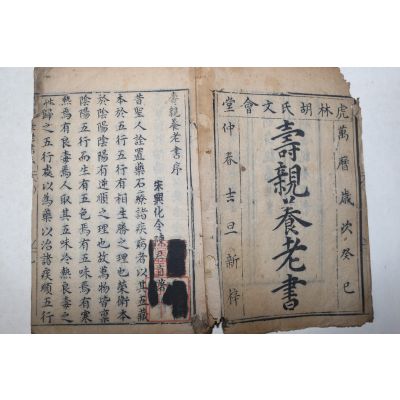 虎林胡氏文會堂
萬曆歲次癸巳
壽親養老書
仲春吉旦新梓
壽親養老書序
宋興化令陳
昔聖人詮置藥石療諸疾病者以其五藏
本於五行五行有相生勝之理也榮衛本
於陰陽陰陽有逆順之理也故萬物皆稟
陰陽五行而生有五色焉有五味焉有寒
熱焉有良毒焉人取其五味冷熱良毒之
性歸之五行處以為藥以治諸疾順五行